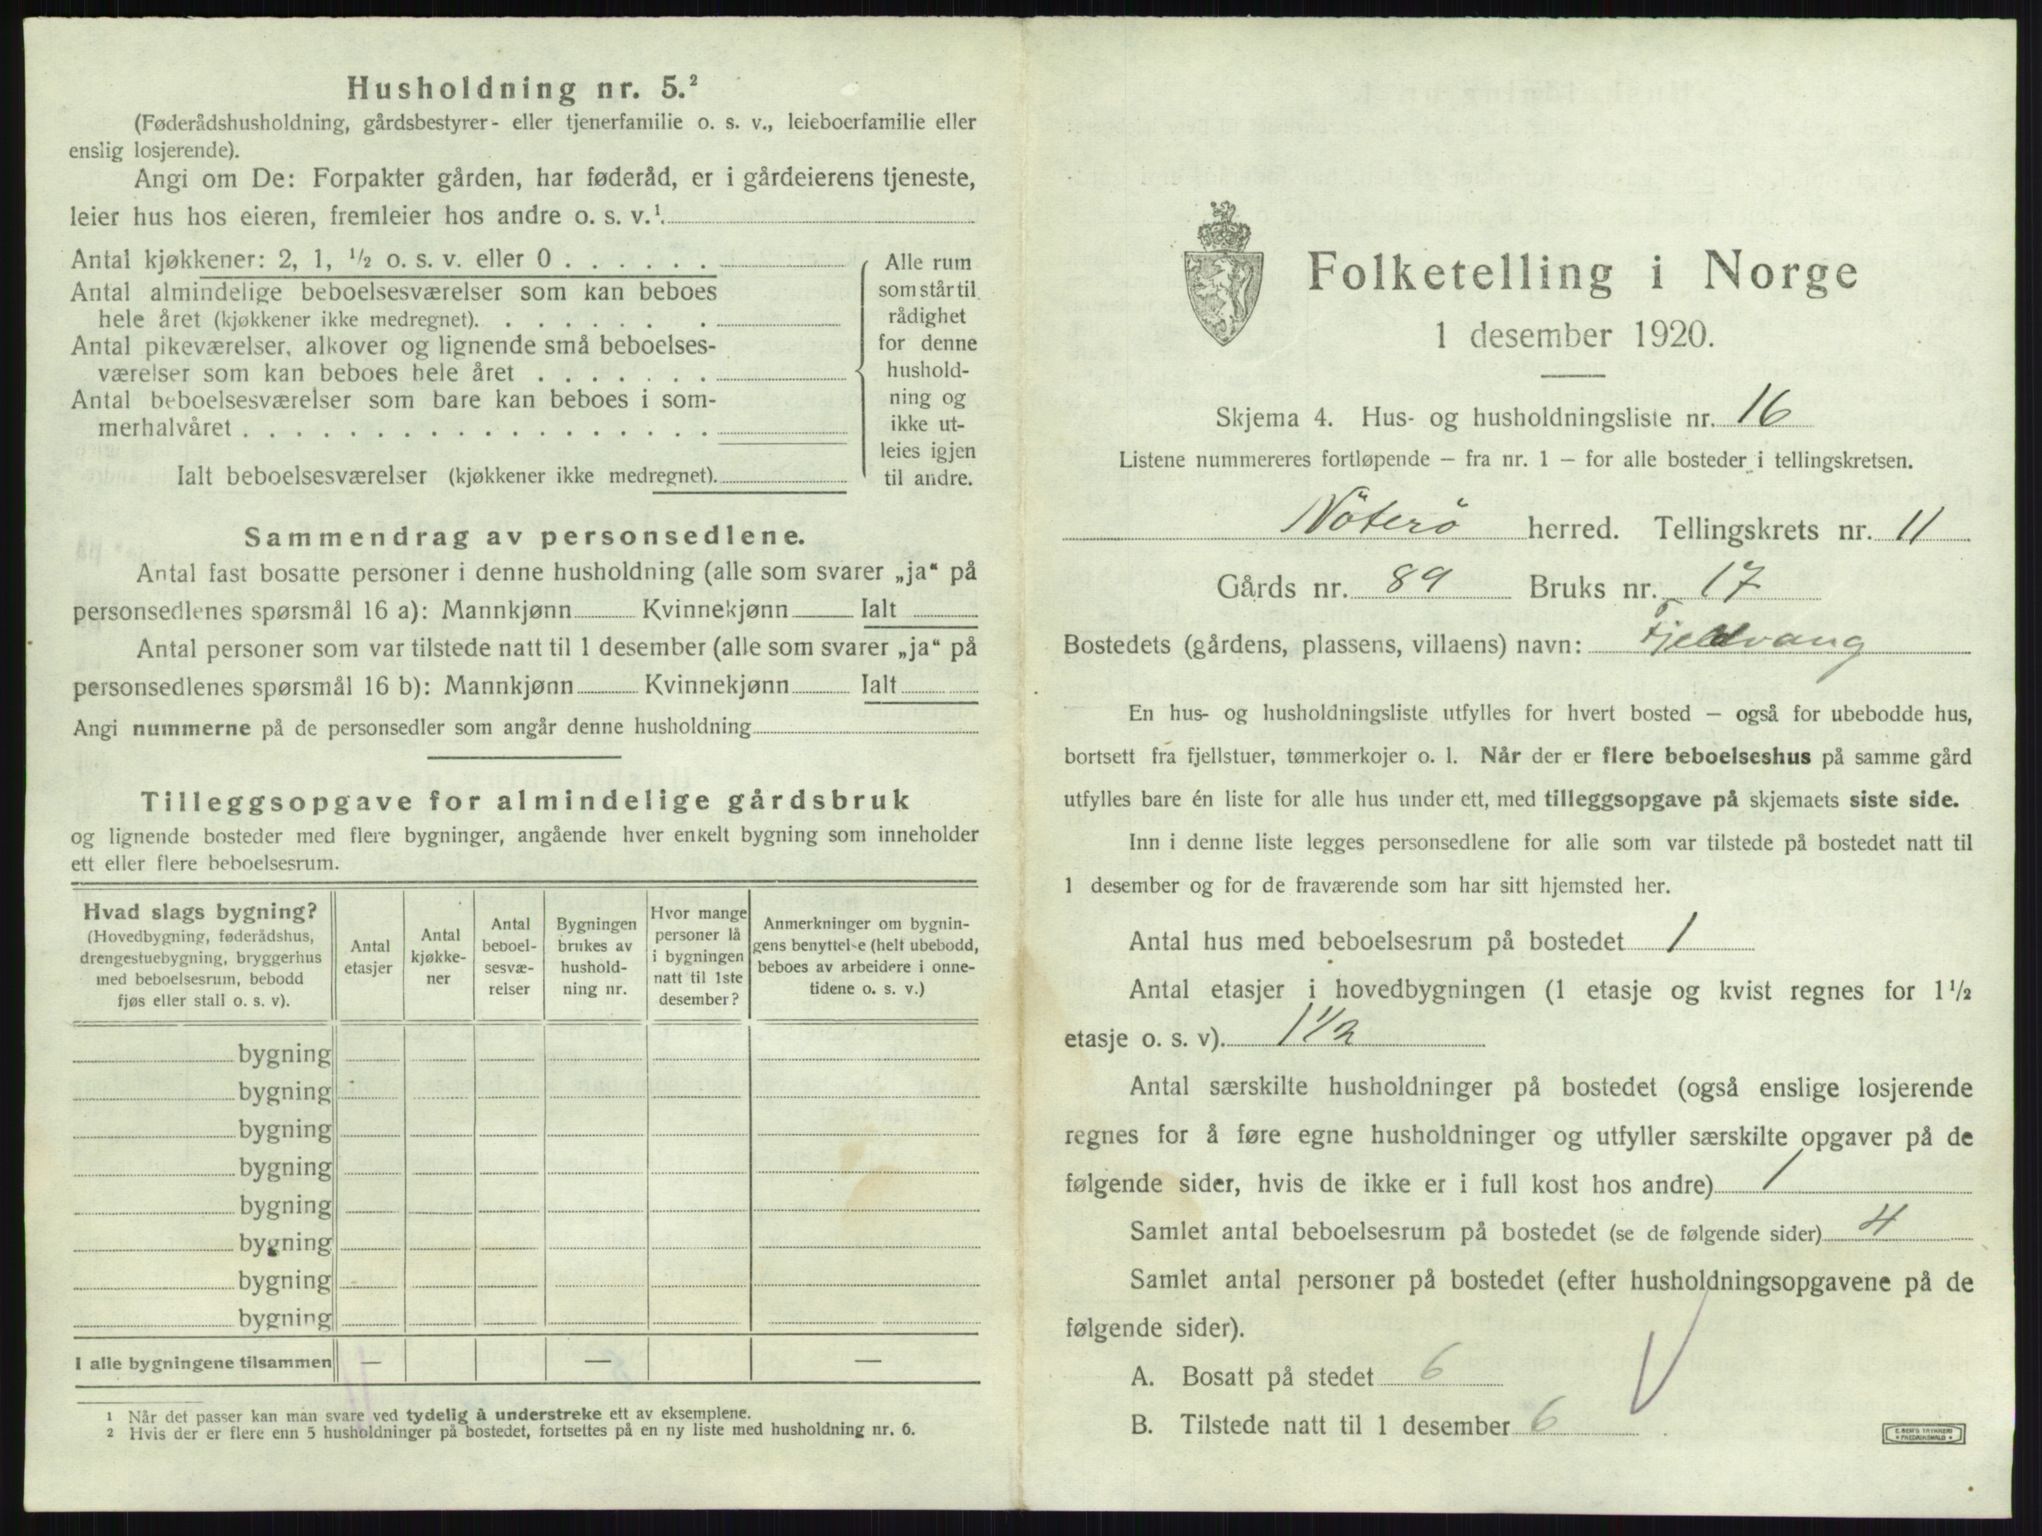 Husholdning nr. 5.²
(Føderådshusholdning, gårdsbestyrer- eller tjenerfamilie o. s. v., leieboerfamilie eller
enslig losjerende).
Angi om De: Forpakter gården, har føderåd, er i gårdeierens tjeneste,
leier hus hos eieren, fremleier hos andre o. s. v.¹
Antal kjøkkener: 2, 1, ½ o. s. v. eller 0 . . . . . .
Antal almindelige beboelsesværelser som kan beboes
hele året (kjøkkener ikke medregnet). . . . . . . .
Antal pikeværelser, alkover og lignende små beboelses-
værelser som kan beboes hele året . . . . . . .
Antal beboelsesværelser som bare kan beboes i som-
merhalvåret . . . . . . . . . . . . . . . . . .
Ialt beboelsesværelser (kjøkkener ikke medregnet).
Alle rum
som står til
rådighet
for denne
hushold-
ning og
ikke ut-
leies igjen
til andre.
Sammendrag av personsedlene.
Antal fast bosatte personer i denne husholdning (alle som svarer „ja“ på
personsedlenes spørsmål 16 a): Mannkjønn Kvinnekjønn Ialt
Antal personer som var tilstede natt til 1 desember (alle som svarer „ja“ på
personsedlenes spørsmål 16 b): Mannkjønn Kvinnekjønn Ialt
Angi nummerne på de personsedler som angår denne husholdning
Tilleggsopgave for almindelige gårdsbruk
og lignende bosteder med flere bygninger, angående hver enkelt bygning som inneholder
ett eller flere beboelsesrum.
Hvad slags bygning?
(Hovedbygning, føderådshus,
drengestuebygning, bryggerhus
med beboelsesrum, bebodd
fjøs eller stall o. s. v).
Antal
etasjer
Antal
kjøkke-
ner
Antal
beboel-
sesvæ-
relser
Bygningen
brukes av
hushold-
ning nr.
Hvor mange
personer lå
i bygningen
natt til 1ste
desember?
Anmerkninger om bygnin-
gens benyttelse (helt ubebodd,
beboes av arbeidere i onne-
tidene o. s. v.)
bygning
bygning
bygning
bygning
bygning
bygning
bygning
bygning
I alle bygningene tilsammen — — —
1 Når det passer kan man svare ved tydelig å understreke ett av eksemplene.
2 Hvis der er flere enn 5 husholdninger på bostedet, fortsettes på en ny liste med husholdning nr. 6.
Folketelling i Norge
1 desember 1920.
Skjema 4. Hus- og husholdningsliste nr. 16
Listene nummereres fortløpende – fra nr. 1 – for alle bosteder i tellingskretsen.
Nöterö herred. Tellingskrets nr. 11
Gårds nr. 89 Bruks nr. 17
Bostedets (gårdens, plassens, villaens) navn: Fjeldvang
En hus- og husholdningsliste utfylles for hvert bosted – også for ubebodde hus,
bortsett fra fjellstuer, tømmerkojer o. l. Når der er flere beboelseshus på samme gård
utfylles bare én liste for alle hus under ett, med tilleggsopgave på skjemaets siste side.
Inn i denne liste legges personsedlene for alle som var tilstede på bostedet natt til
1 desember og for de fraværende som har sitt hjemsted her.
Antal hus med beboelsesrum på bostedet 1
Antal etasjer i hovedbygningen (1 etasje og kvist regnes for 1½
etasje o. s. v). 1½
Antal særskilte husholdninger på bostedet (også enslige losjerende
regnes for å føre egne husholdninger og utfyller særskilte opgaver på de
følgende sider, hvis de ikke er i full kost hos andre) 1
Samlet antal beboelsesrum på bostedet (se de følgende sider) 4
Samlet antal personer på bostedet (efter husholdningsopgavene på de
følgende sider).
A. Bosatt på stedet 6
B. Tilstede natt til 1 desember 6